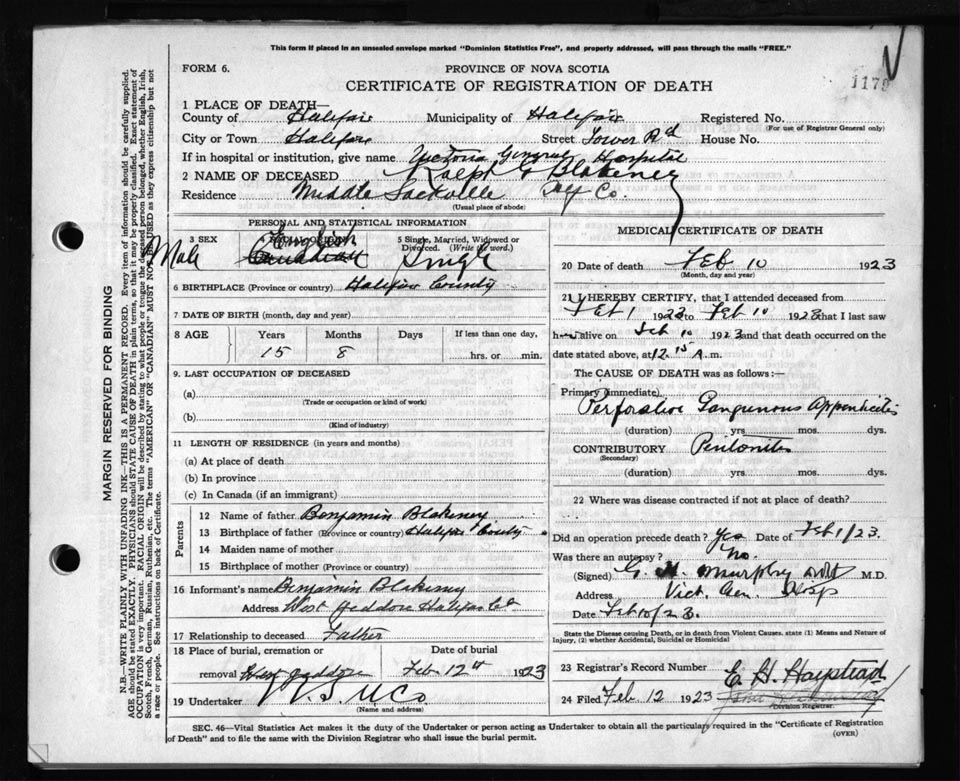 This form if placed in an unsealed envelope marked "Dominion Statistics Free", and properly addressed, will pass through the mails "FREE."
FORM 6.
PROVINCE OF NOVA SCOTIA
CERTIFICATE OF REGISTRATION OF DEATH
1179
1 PLACE OF DEATH—
County of Halifax Municipality of Halifax Registered No.
(For use of Registrar General only)
City or Town Halifax Street Tower Rd House No.
If in hospital or institution, give name Victoria General Hospital
2 NAME OF DECEASED Ralph Blakeney
Residence Middle Sackville Hfx Co.
(Usual place of abode)
PERSONAL AND STATISTICAL INFORMATION
3 SEX Male
English
Canadian
5 Single, Married, Widowed or Divorced. (Write the word.) Single
6 BIRTHPLACE (Province or country) Halifax County
7 DATE OF BIRTH (month, day and year)
8 AGE Years Months Days If less than one day,
15 8 hrs. or min.
9. LAST OCCUPATION OF DECEASED
(a)
(Trade or occupation or kind of work)
(b)
(Kind of industry)
11 LENGTH OF RESIDENCE (in years and months)
(a) At place of death
(b) In province
(c) In Canada (if an immigrant)
Parents
12 Name of father Benjamin Blakeney
13 Birthplace of father (Province or country) Halifax County
14 Maiden name of mother
15 Birthplace of mother (Province or country)
16 Informant's name Benjamin Blakeney
Address West Jeddore Halifax Co
17 Relationship to deceased Father
18 Place of burial, cremation or removal West Jeddore
Date of burial Feb. 12th 1923
19 Undertaker N. S. U Co
(Name and address)
MEDICAL CERTIFICATE OF DEATH
20 Date of death Feb 10 1923
(Month, day and year)
21 I HEREBY CERTIFY, that I attended deceased from
Feb 1 1923 to Feb 10 1923 that I last saw
h alive on Feb 10 1923 and that death occurred on the
date stated above, at 12 15 A. m.
The CAUSE OF DEATH was as follows:—
Primary (immediate)
Perforative Gangrenous Appendicitis
(duration) yrs. mos. dys.
CONTRIBUTORY Peritonitis
(Secondary)
(duration) yrs. mos. dys.
22 Where was disease contracted if not at place of death?
Did an operation precede death? Yes Date of Feb 1/23.
Was there an autopsy? No.
(Signed) G. H. Murphy M.D.
Address Vict. Gen. Hosp
Date Feb 10/23.
State the Disease causing Death, or in death from Violent Causes. state (1) Means and Nature of
Injury, (2) whether Accidental, Suicidal or Homicidal
23 Registrar's Record Number
E. H. Halpstead
24 Filed Feb 12 1923
Division Registrar.
SEC. 46—Vital Statistics Act makes it the duty of the Undertaker or person acting as Undertaker to obtain all the particulars required in the "Certificate of Registration
of Death" and to file the same with the Division Registrar who shall issue the burial permit.
(OVER)
MARGIN RESERVED FOR BINDING
N.B.—WRITE PLAINLY WITH UNFADING INK—THIS IS A PERMANENT RECORD. Every item of information should be carefully supplied.
AGE should be stated EXACTLY. PHYSICIANS should STATE CAUSE OF DEATH in plain terms, so that it may be properly classified. Exact statement of
OCCUPATION is very important. RACIAL ORIGIN will be described by stating to what people or tongue the deceased person belonged, whether English, Irish,
Scotch, French, German, Russian, Ruthenian, etc. The terms "AMERICAN" OR "CANADIAN" MUST NOT BE USED as they express citizenship but not
a race or people. See instructions on back of Certificate.